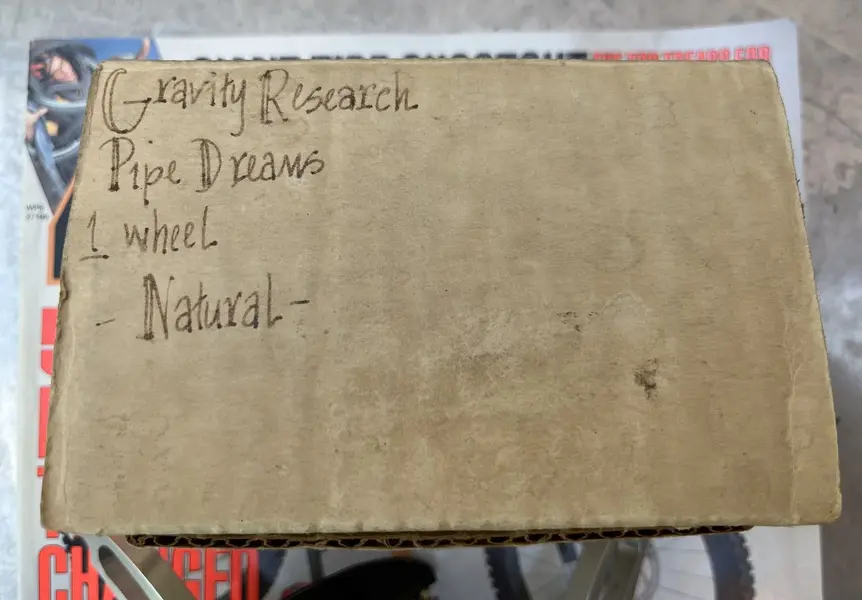 Gravity Research
Pipe Dreams
1 wheel
- Natural -